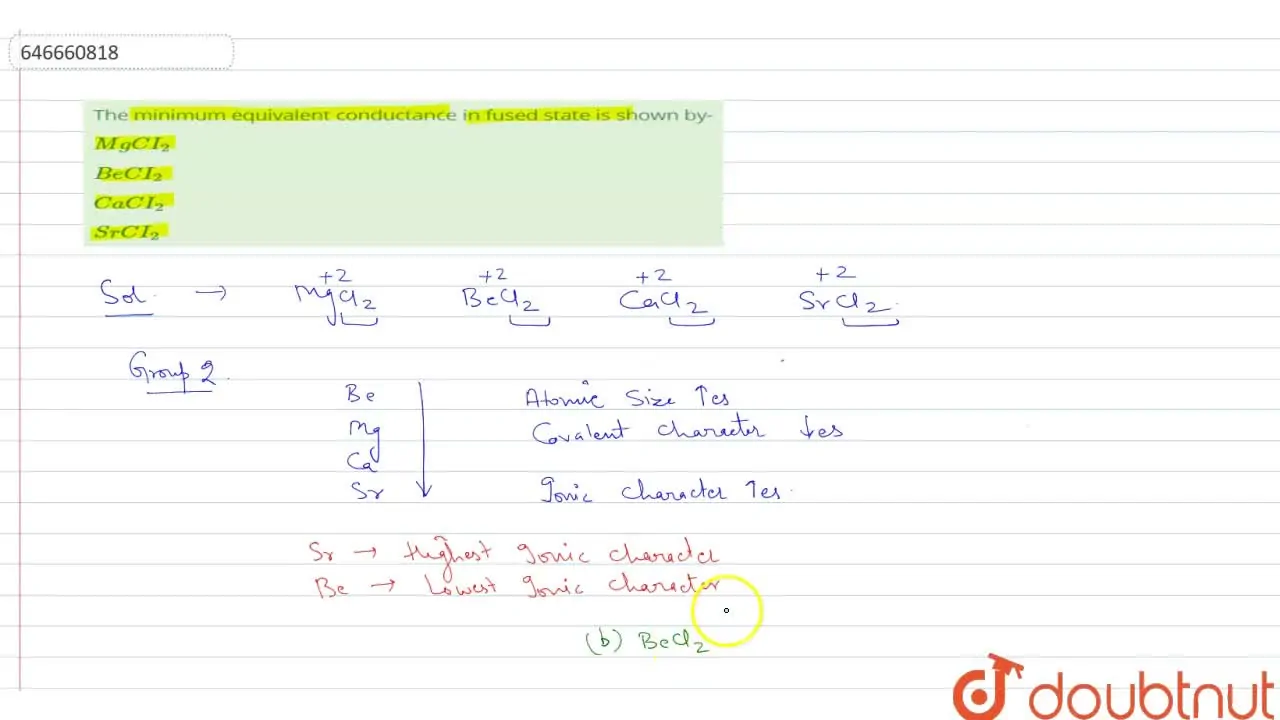 646660818
The minimum equivalent conductance in fused state is shown by-
MgCI₂
BeCI₂
CaCI₂
SrCI₂
+2 +2 +2 +2
Sol. → MgCl₂ BeCl₂ CaCl₂ SrCl₂
Group 2.
Be Atomic Size ↑es
Mg Covalent character ↓es
Ca
Sr Ionic character ↑es.
Sr → Highest Ionic character
Be → Lowest Ionic character
(b) BeCl₂
doubtnut